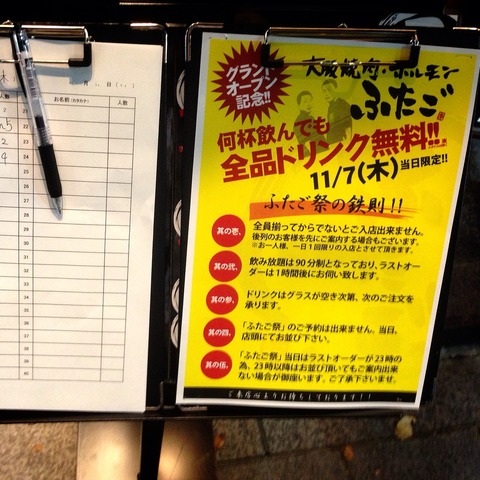 お名前(カタカナ)
人数
22
23
24
25
26
27
28
29
30
31
32
33
34
35
36
37
38
39
40
グランド
オープン
記念!!
大阪焼肉・ホルモン
ふたご
何杯飲んでも
全品ドリンク無料!!
11/7(木)当日限定!!
ふたご祭の鉄則!!
其の壱、
全員揃ってからでないとご入店出来ません。
後列のお客様を先にご案内する場合もございます。
※お一人様、一日1回限りの入店とさせて頂きます。
其の弐、
飲み放題は90分制となっており、ラストオー
ダーは1時間後にお伺い致します。
其の参、
ドリンクはグラスが空き次第、次のご注文を
承ります。
其の四、
「ふたご祭」のご予約は出来ません。当日、
店頭にてお並び下さい。
其の伍、
「ふたご祭」当日はラストオーダーが23時の
為、23時以降はお並び頂いてもご案内出来
ない場合が御座います。ご了承下さいませ。
ご来店心よりお待ちしております!!